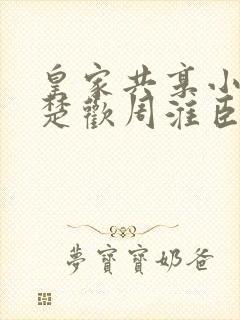 皇家共享小
楚歡周淮臣
夢寶寶奶爸